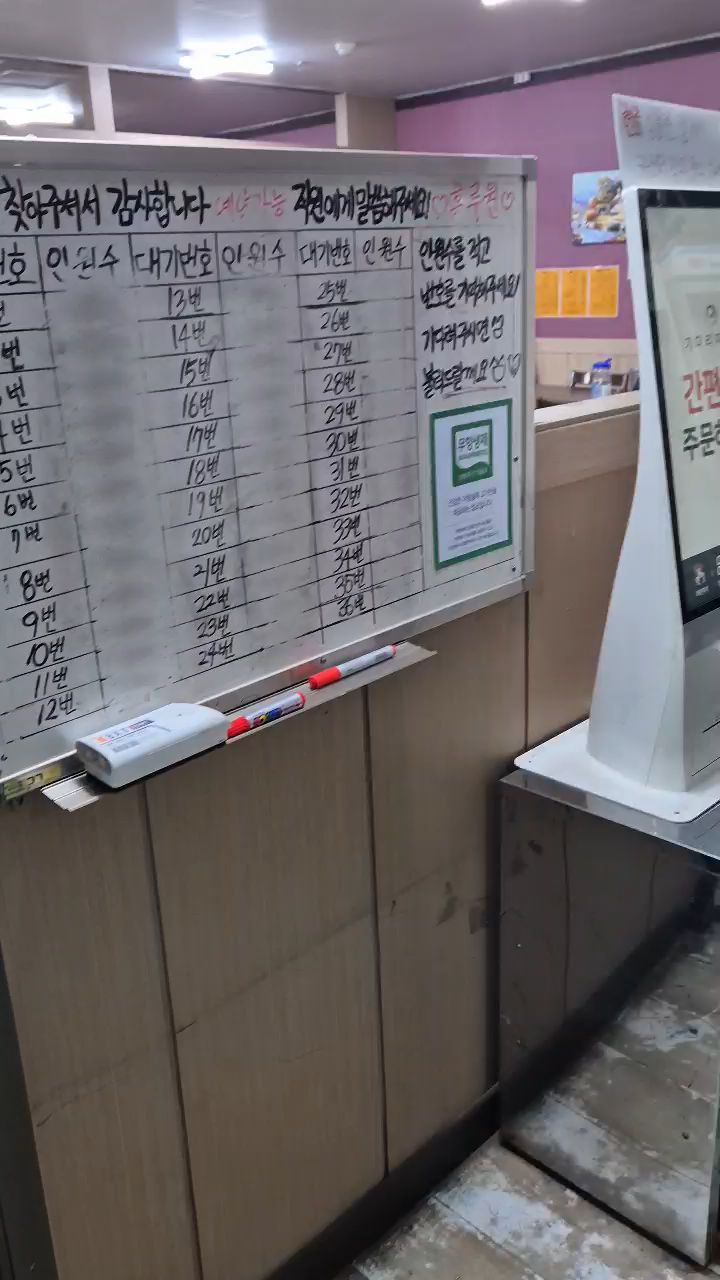 찾아주셔서 감사합니다 예약가능 직원에게 말씀해주세요! ♡후루원♡
호 인원수 대기번호 인원수 대기번호 인원수
인원수를 적고
번호를 기억해주세요!
기다려주시면
불러드릴게요 ♡
13번 25번
14번 26번
15번 27번
16번 28번
17번 29번
5번 18번 30번
6번 19번 31번
7번 20번 32번
8번 21번 33번
9번 22번 34번
10번 23번 35번
11번 24번 36번
12번
무항생제
간편
주문